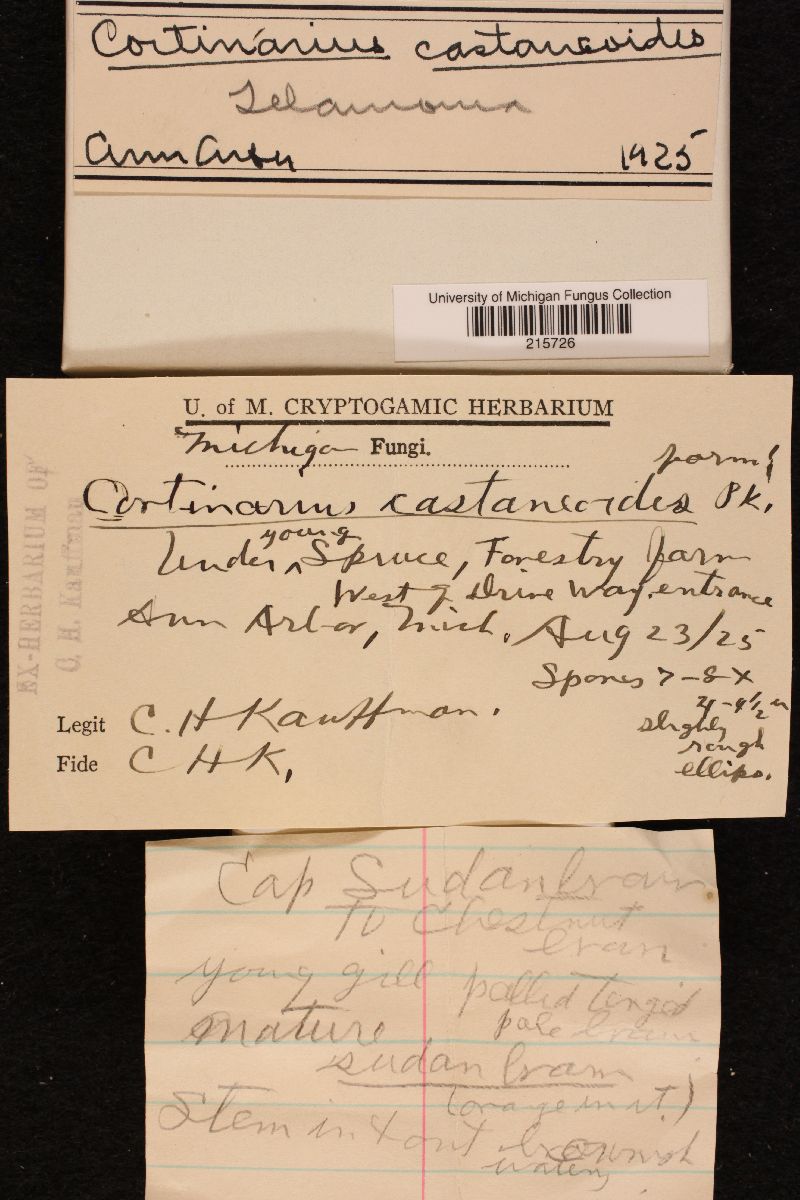 Cortinarius castaneoides
Telamonia
Ann Arbor 1925
University of Michigan Fungus Collection
215726
U. of M. CRYPTOGAMIC HERBARIUM
Michigan Fungi.
form!
Cortinarius castaneoides Pk.
young
Under ^ Spruce, Forestry farm
West of Drive Way entrance
Ann Arbor, Mich. Aug 23/25
Spores 7-8 x
4-4 1/2 u
slighly
rough
ellips.
Legit C. H Kauffman.
Fide C H K,
EX-HERBARIUM OF
C. H. Kauffman
Cap Sudan brown
to Chestnut
brown
young gill pallid tinged
pale brown
mature
sudan brown
(orange in it!)
Stem in & out brownish
watery